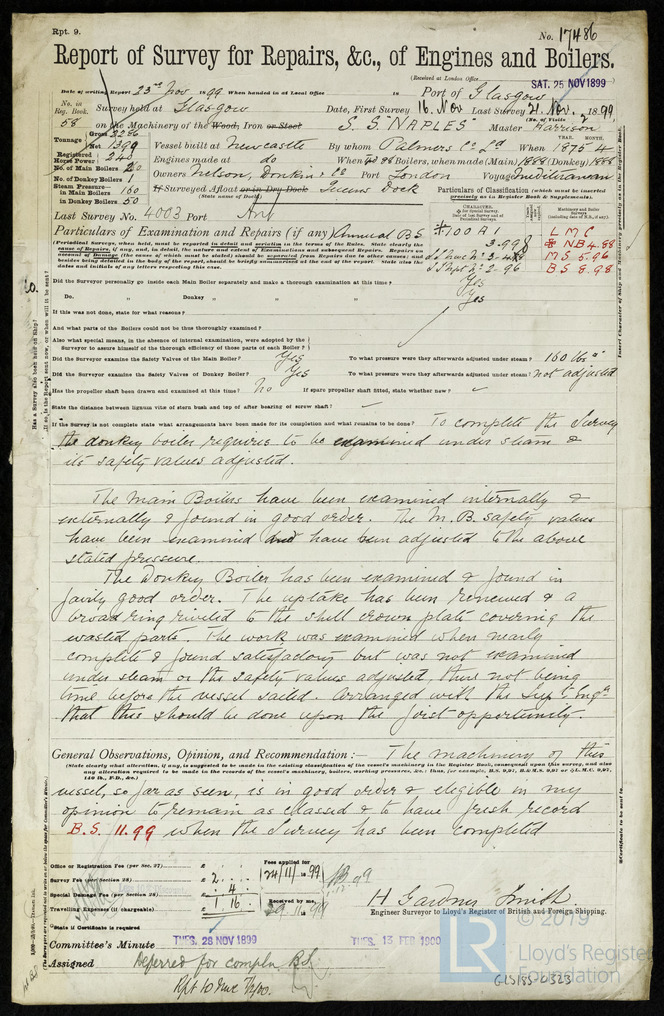 Rpt. 9.
No. 17486
Report of Survey for Repairs, &c., of Engines and Boilers.
(Received at London Office SAT. 25 NOV 1899
Date of writing Report 23rd Nov 1899 When handed in at Local Office 18 Port of Glasgow
No. in Reg. Book. 58
Survey held at Glasgow Date, First Survey 16. Nov Last Survey 21. Nov. 1899
(No. of Visits 2
on the Machinery of the Wood, Iron or Steel S.S. "NAPLES" Master Harrison
Tonnage Gross 2286 Net 1399
Vessel built at Newcastle By whom Palmers Co Ld When 1875 4
YEAR. MONTH.
Registered Horse Power 240
Engines made at do When 75 Boilers, when made (Main) 1888 (Donkey) 1888
No. of Main Boilers 2
No. of Donkey Boilers 1
Owners Nelson, Donkin & Co Port London Voyage Mediterranean
Steam Pressure in Main Boilers 160
in Donkey Boilers 50
If Surveyed Afloat or in Dry Dock Queens Dock
(State name of Dock)
Particulars of Classification (which must be inserted precisely as in Register Book & Supplements).
Last Survey No. 4003 Port Ant
Particulars of Examination and Repairs (if any) Annual BS
CHARACTER.
100 A 1
3.99
LMC
NB 4.88
MS 5.96
BS 8.98
(Periodical Surveys, when held, must be reported in detail and seriatim in the terms of the Rules. State clearly the cause of Repairs, if any, and, in detail, the nature and extent of Examinations and Repairs. Repairs on account of Damage (the cause of which must be stated) should be separated from Repairs due to other causes; and besides being detailed in the body of the report, should be briefly summarized at the end of the report. State also the dates and initials of any letters respecting this case.
Did the Surveyor personally go inside each Main Boiler separately and make a thorough examination at this time? Yes
Do. " Donkey " " " " Yes
If this was not done, state for what reasons?
And what parts of the Boilers could not be thus thoroughly examined?
Also what special means, in the absence of internal examination, were adopted by the Surveyor to assure himself of the thorough efficiency of those parts of each Boiler?
Did the Surveyor examine the Safety Valves of the Main Boiler? Yes To what pressure were they afterwards adjusted under steam? 160 lbs □"
Did the Surveyor examine the Safety Valves of Donkey Boiler? Yes To what pressure were they afterwards adjusted under steam? not adjusted
Has the propeller shaft been drawn and examined at this time? No If spare propeller shaft fitted, state whether new?
State the distance between lignum vitæ of stern bush and top of after bearing of screw shaft?
If the Survey is not complete state what arrangements have been made for its completion and what remains to be done? To complete the Survey
the donkey boiler requires to be examined under steam &
its safety valves adjusted.
The Main Boilers have been examined internally &
externally & found in good order. The M.B. safety valves
have been examined and have been adjusted to the above
stated pressure.
The Donkey Boiler has been examined & found in
fairly good order. The uptake has been renewed & a
broad ring riveted to the shell crown plate covering the
wasted parts. The work was examined when nearly
complete & found satisfactory but was not examined
under steam or the safety valves adjusted, there not being
time before the vessel sailed. Arranged with the Supt Engr
that this should be done upon the first opportunity.
General Observations, Opinion, and Recommendation:— The machinery of this
(State clearly what alterations, if any, is suggested to be made in the existing classification of the vessel's machinery in the Register Book, consequent upon this survey, and also any alteration required to be made in the records of the vessel's machinery, boilers, working pressures, &c.: thus, for example, B.S. 9,97, B.&M.S. 9,97 or L.M.C. 9,97, 140 lb., F.D., &c.)
vessel, so far as seen, is in good order & eligible in my
opinion to remain as classed & to have fresh record
B.S. 11.99 when the Survey has been completed
Office or Registration Fee (per Sec. 27)... £
Survey Fee (per Section 28) £ 2
Special Damage Fee (per Section 28) £ 4
Travelling Expenses (if chargeable) £ 1.16
Fees applied for 24/11/1899
Received by me, 29.11.1899
H Gardner Smith
Engineer Surveyor to Lloyd's Register of British and Foreign Shipping.
State if Certificate is required
Committee's Minute TUES. 28 NOV 1899 TUES. 13 FEB 1900
Assigned Deferred for compln B.S.
© 2019
LR
Lloyd's Register
Foundation
GLS185-0323